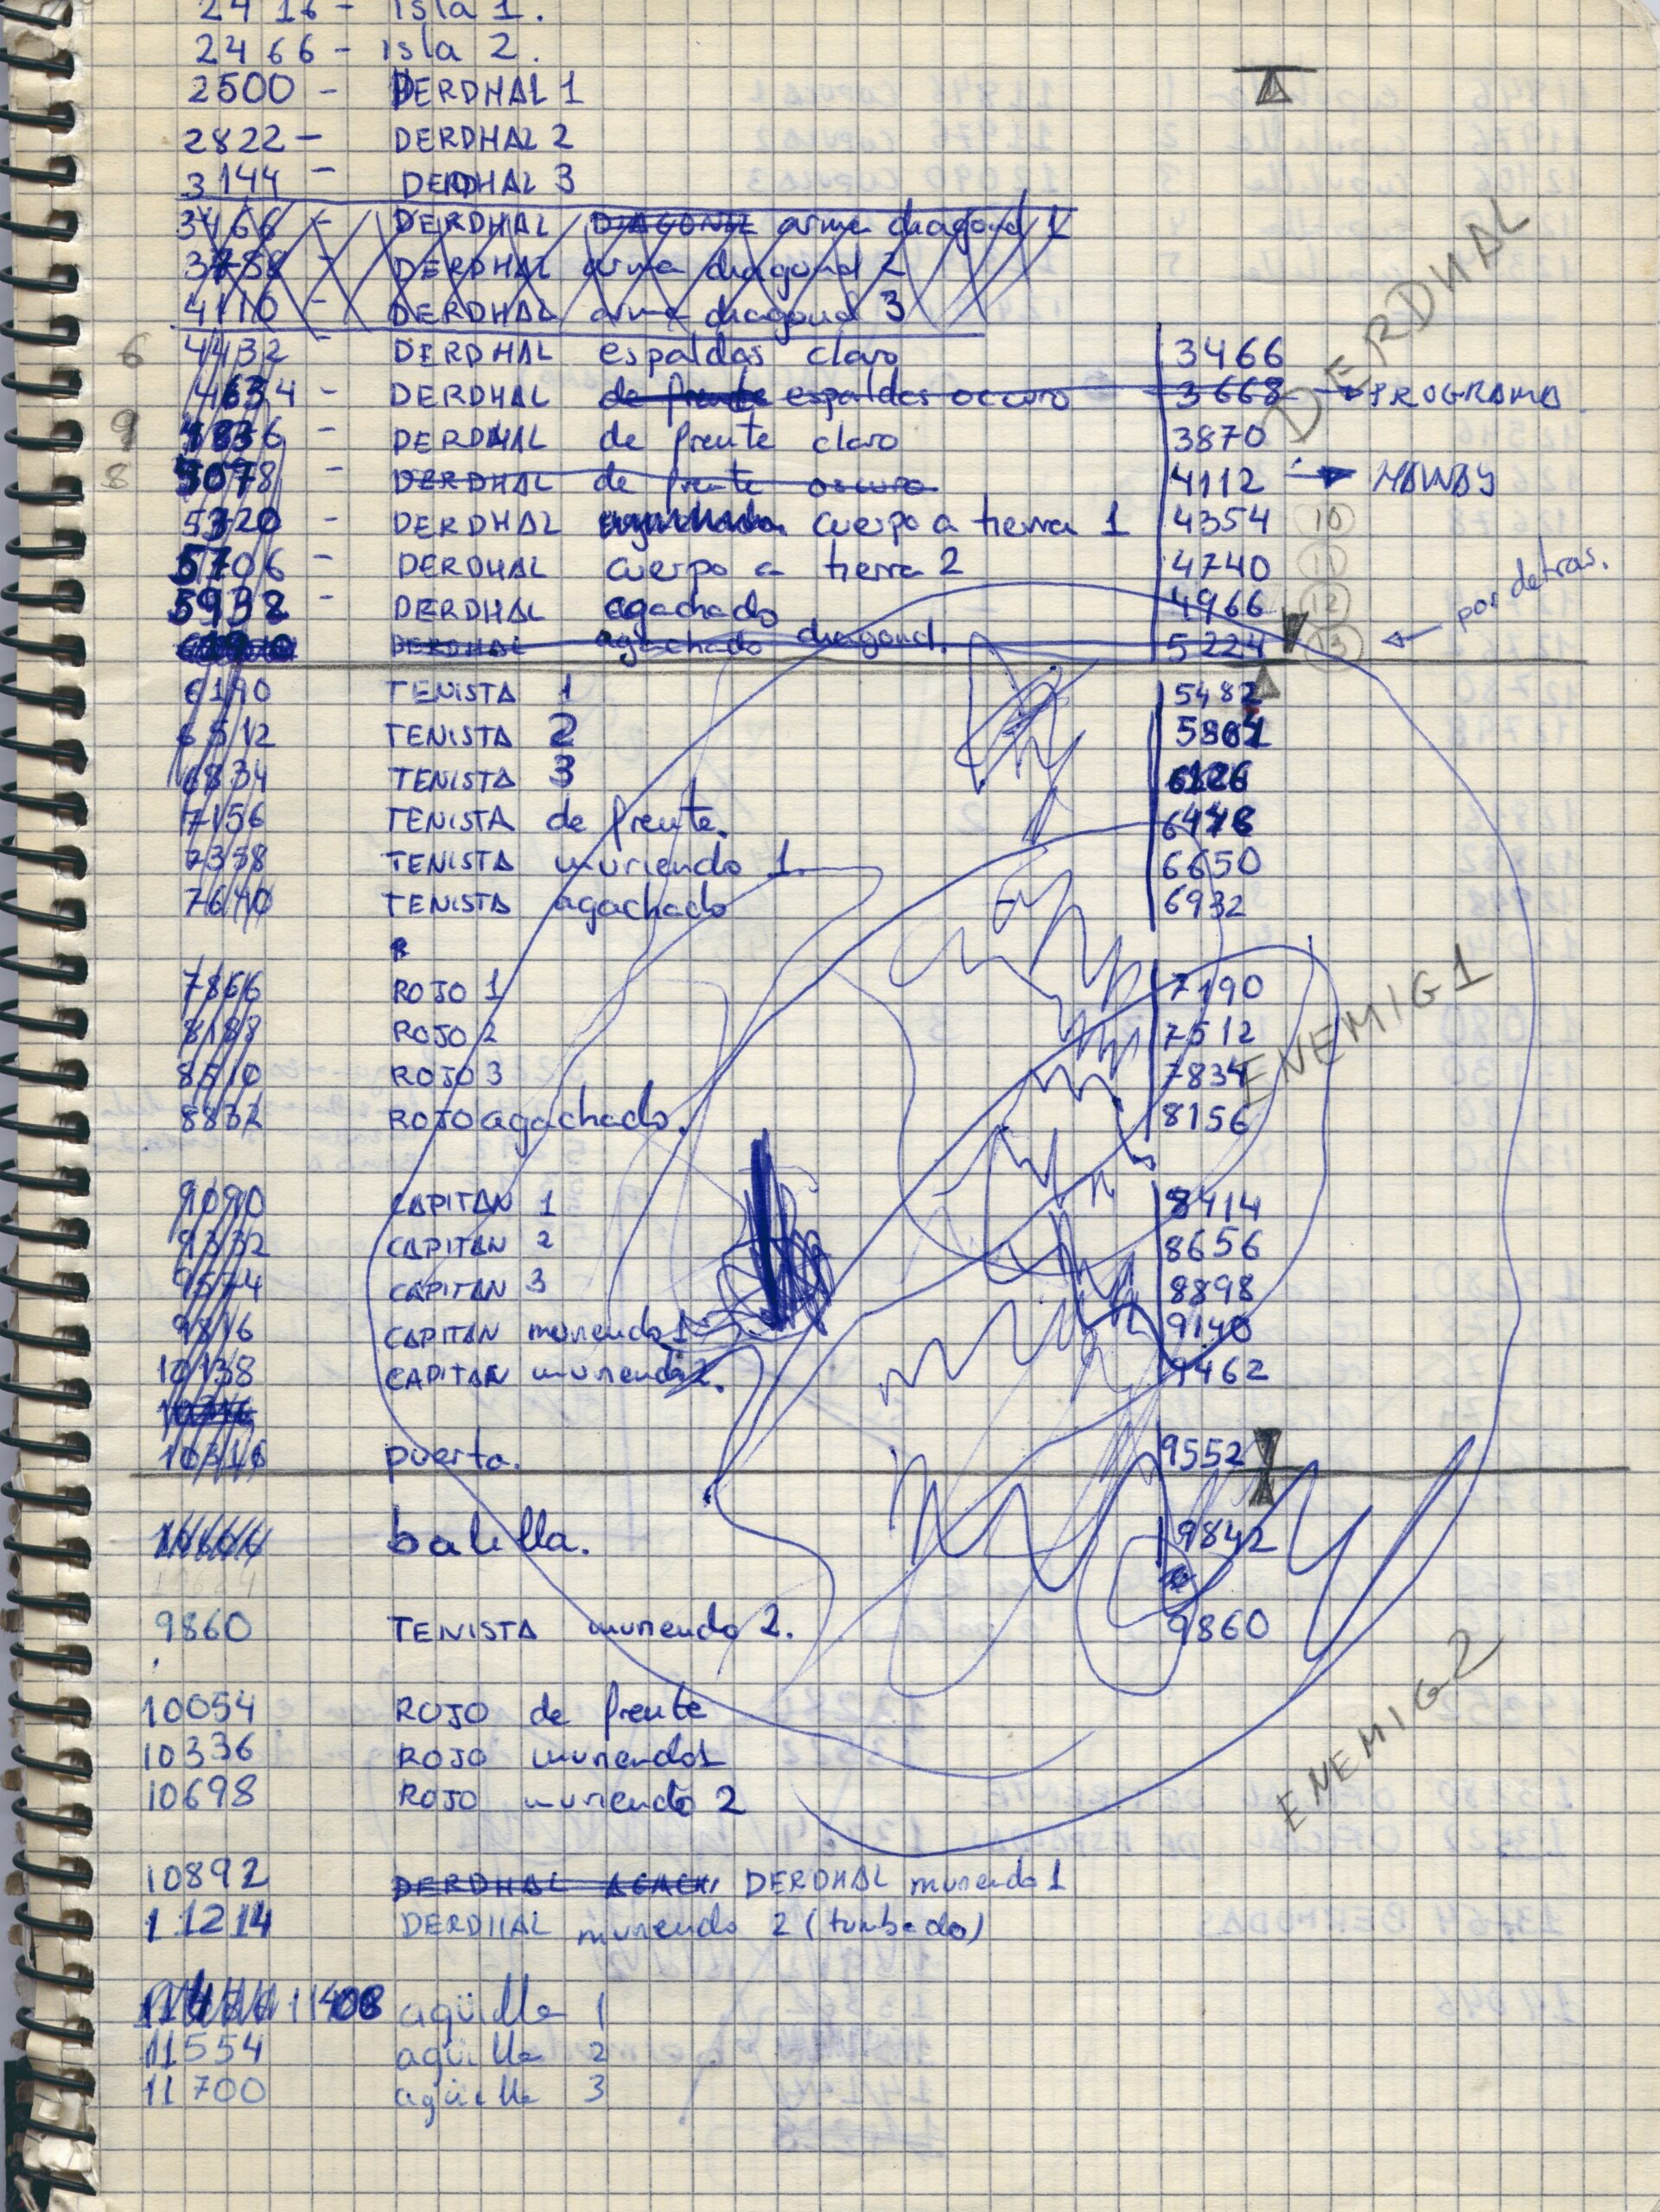 2416 - isla 1.
2466 - isla 2.
2500 - DERDHAL 1
2822 - DERDHAL 2
3144 - DERDHAL 3
3466 - DERDHAL DIAGONAL arma diagonal 1
3788 - DERDHAL arma diagonal 2
4110 - DERDHAL arma diagonal 3
6 4432 - DERDHAL espaldas claro 3466
4634 - DERDHAL de frente espaldas oscuro 3668 → PROGRAMA
9 4836 - DERDHAL de frente claro 3870
8 5078 - DERDHAL de frente oscuro 4112 → MANDAJ
5320 - DERDHAL cuerpo a tierra 1 4354 10
5706 - DERDHAL cuerpo a tierra 2 4740 11
5932 - DERDHAL agachado 4966 12
6190 DERDHAL agachado diagonal. 5224 13 ← por detras.
DERDHAL
6190 TENISTA 1 5482
6512 TENISTA 2 5804
6834 TENISTA 3 6126
7156 TENISTA de frente. 6448
7358 TENISTA muriendo 1. 6650
7640 TENISTA agachado 6932
7866 ROJO 1 7190
8188 ROJO 2 7512
8510 ROJO 3 7834
8832 ROJO agachado. 8156
ENEMIG1
9090 CAPITAN 1 8414
9332 CAPITAN 2 8656
9574 CAPITAN 3 8898
9816 CAPITAN muriendo 1 9140
10138 CAPITAN muriendo 2. 9462
10346 puerta. 9552
balilla. 9842
9860 TENISTA muriendo 2. 9860
10054 ROJO de frente
10336 ROJO muriendo 1
10698 ROJO muriendo 2
ENEMIG2
10892 DERDHAL AGACH DERDHAL muriendo 1
11214 DERDHAL muriendo 2 (tumbado)
11408 agüilla 1
11554 agüilla 2
11700 agüilla 3